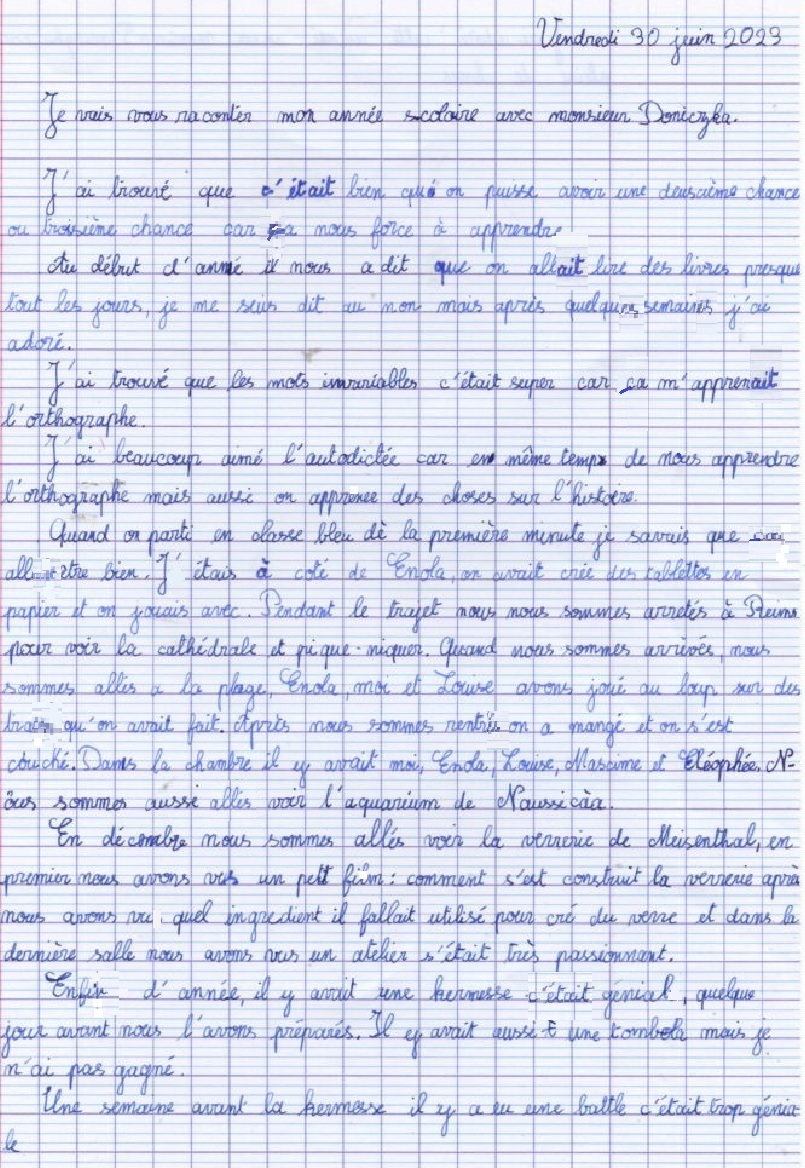 Vendredi 30 juin 2023
Je vais vous raconter mon année scolaire avec monsieur Doniczka.
J'ai trouvé que c'était bien qué on puisse avoir une deuxième chance
ou troisième chance car ça nous force à apprendre
Au début d'anné il nous a dit que on allait lire des livres presque
tout les jours, je me suis dit au non mais après quelques semaines j'ai
adoré.
J'ai trouvé que les mots invariables c'était super car ça m'apprenait
l'orthographe.
J'ai beaucoup aimé l'autodictée car en même temps de nous apprendre
l'orthographe mais aussi on apprenee des choses sur l'histoire.
Quand on parti en classe bleu dè la première minute je savais que
allait être bien. J'étais à coté de Enola, on avait crée des tablettes en
papier et on jouais avec. Pendant le trajet nous nous sommes arretés à Reims
pour voir la cathédrale et pique-niquer. Quand nous sommes arrivés, nous
sommes allés a la plage, Enola, moi et Louise avons joué au loup sur des
traces qu'on avait fait. Après nous sommes rentrés on a mangé et on s'est
couché. Dans la chambre il y avait moi, Enola, Louise, Maxime et Cléophée. N-
ous sommes aussi allés voir l'aquarium de Naussicàa.
En décembre nous sommes allés voir la verrerie de Meisenthal, en
premier nous avons vus un petit film : comment s'est construit la verrerie après
nous avons vu quel ingredient il fallait utilisé pour cré du verre et dans la
dernière salle nous avons vus un atelier s'était très passionnant.
Enfin d'année, il y avait une kermesse c'était génial, quelque
jour avant nous l'avons préparés. Il ey avait aussi une tombola mais je
n'ai pas gagné.
Une semaine avant la kermesse il y a eu une battle c'était trop génia
le